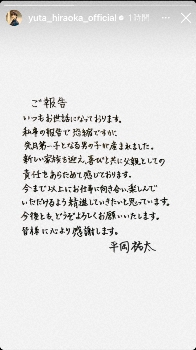 yuta_hiraoka_official 1時間
ご報告
いつもお世話になっております。
私事の報告で恐縮ですが、
先日第一子となる男の子が産まれました。
新しい家族を迎え、喜びと共に父親としての
責任をあらためて感じております。
今まで以上にお仕事に向き合い、楽しんで
いただけるよう精進していきたいと思っています。
今後とも、どうぞよろしくお願いいたします。
皆様に心より感謝します。
平岡祐太